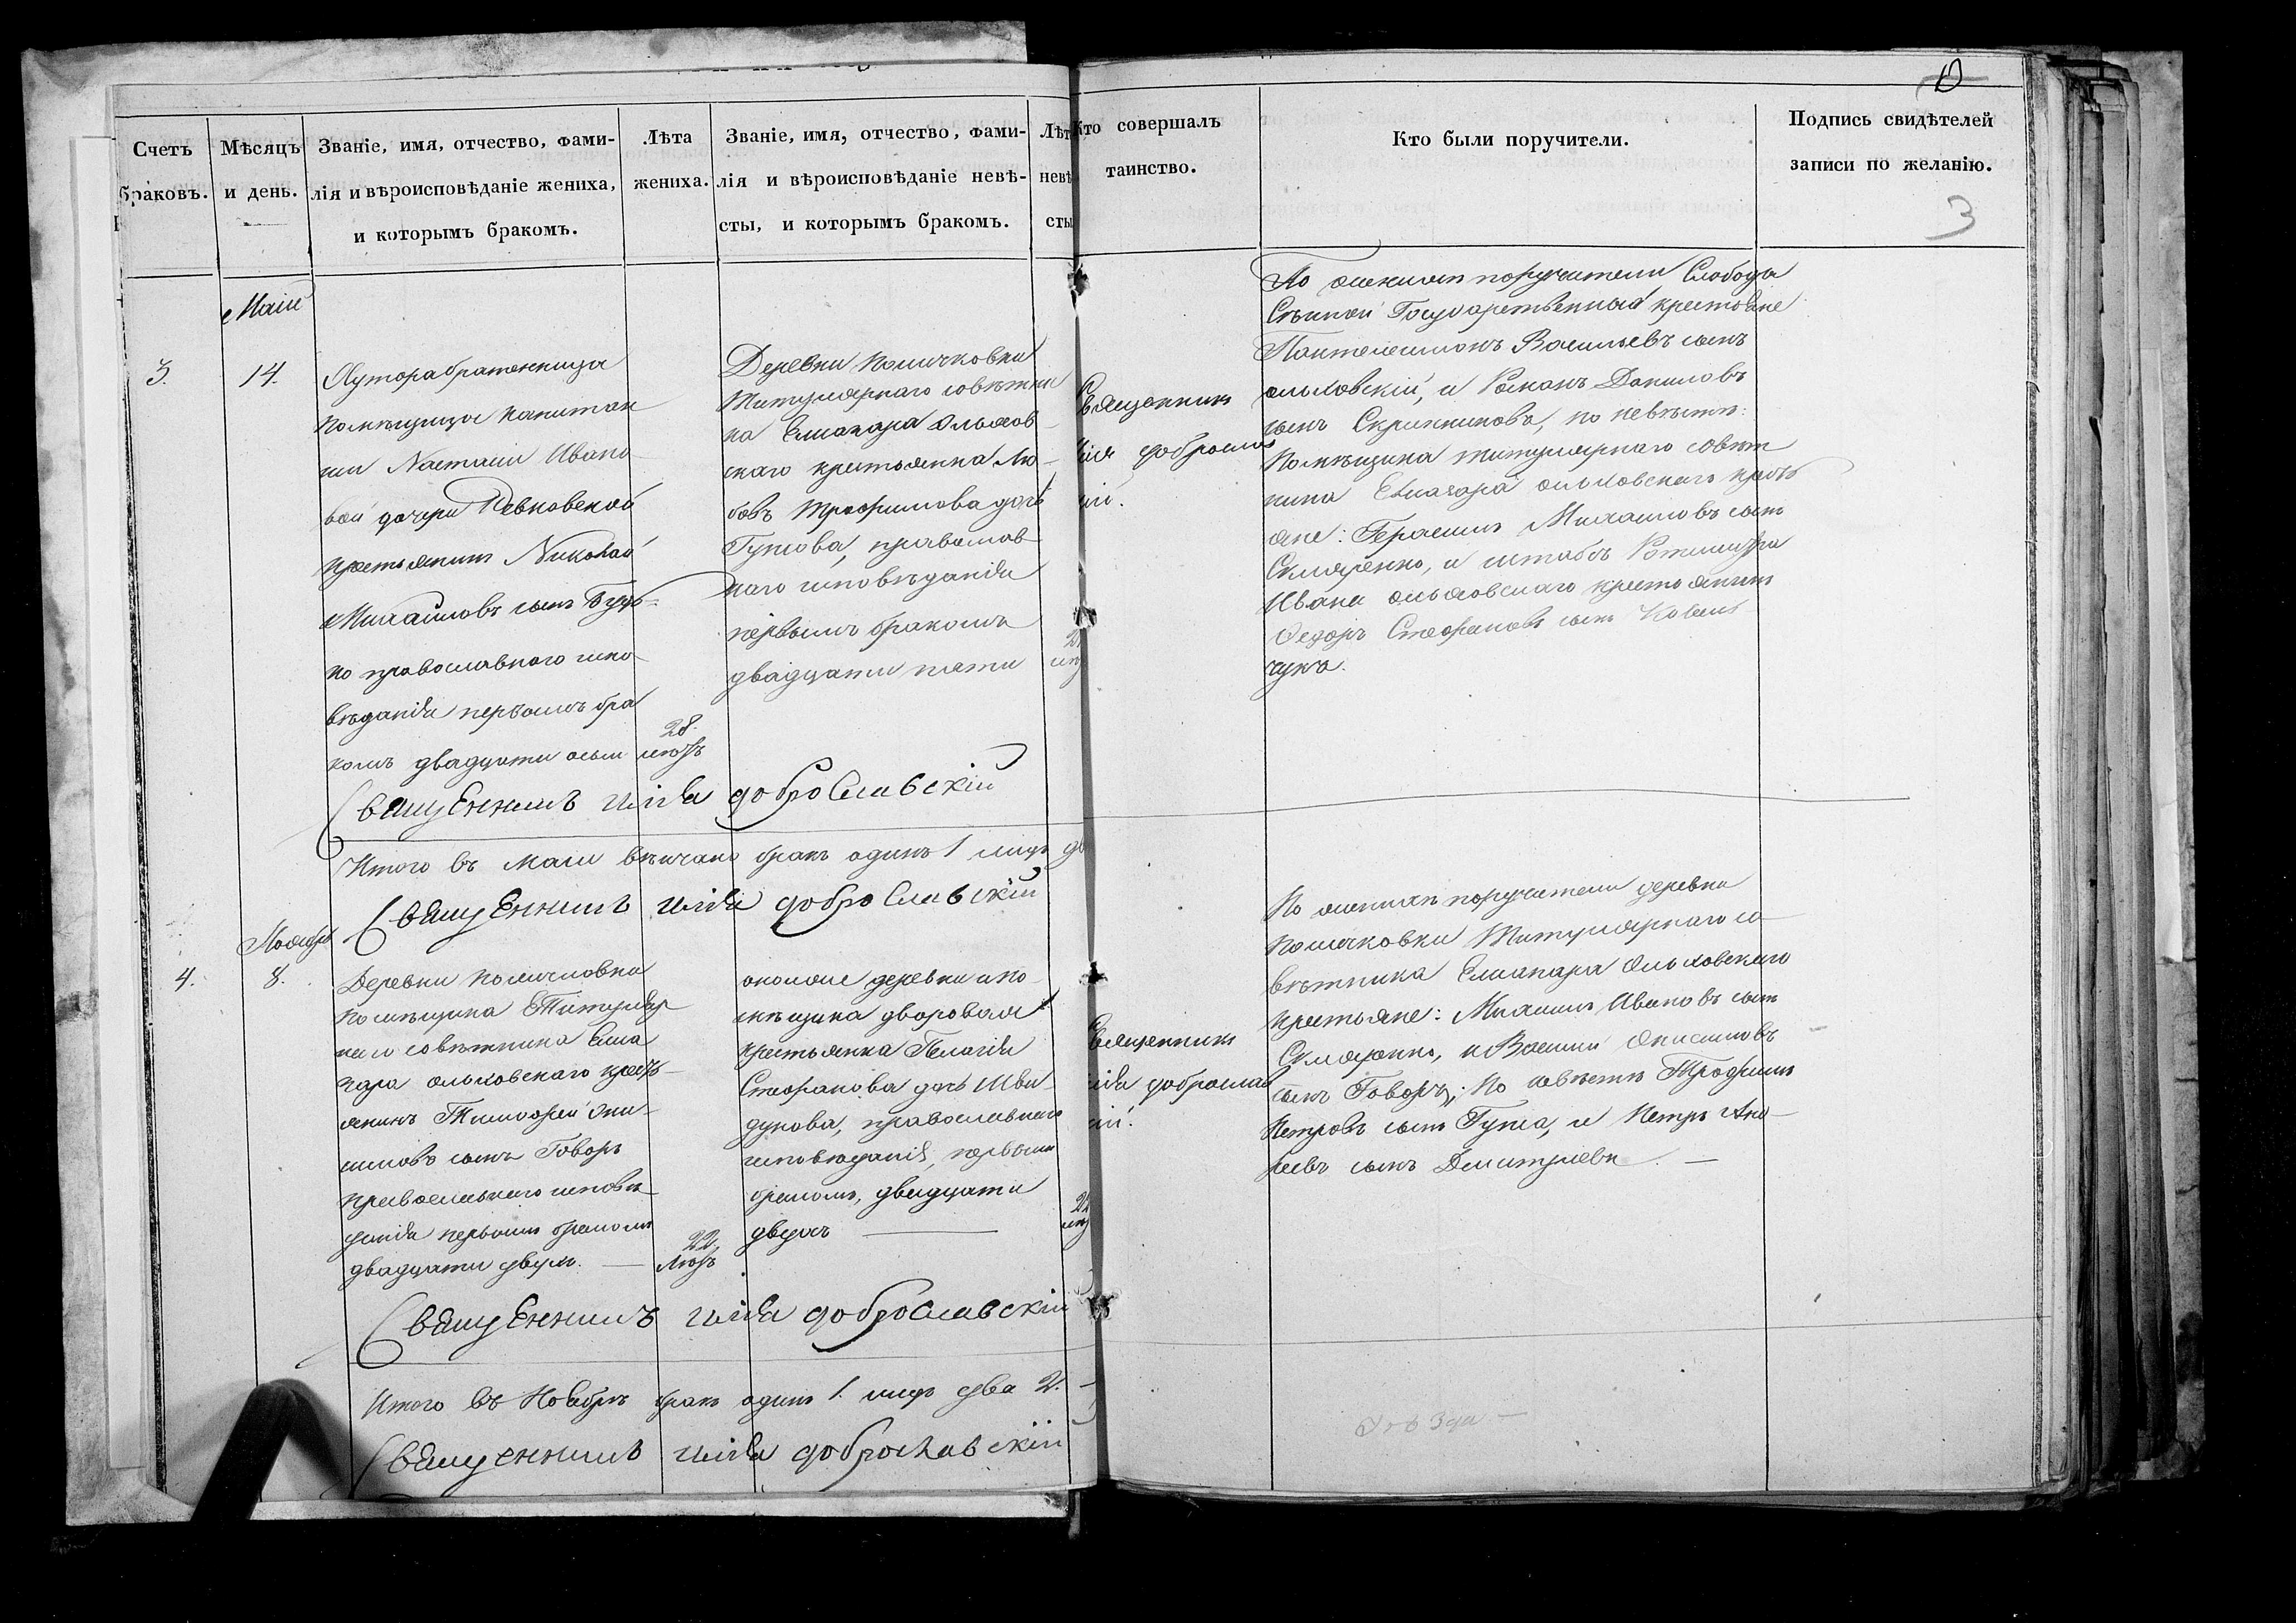 Счетъ браковъ.
Мѣсяцъ и день.
Званіе, имя, отчество, фами-
лія и вѣроисповѣданіе жениха,
и которымъ бракомъ.
Лѣта
жениха.
Званіе, имя, отчество, фами-
лія и вѣроисповѣданіе невѣ-
сты, и которымъ бракомъ.
Лѣт
невѣ
сты
Кто совершалъ
таинство.
Кто были поручители.
Подпись свидѣтелей
записи по желанію.
3
Маій
3.
14.
Хутора
помѣщицы капитан
ши Настасіи Ивано
вой дочери Левковской
крестьянинъ Николай
Михайловъ сынъ
ко православного испо
вѣданія первымъ бра
комъ двадцати осьми
28.
лѣтъ
Деревни Поличковки
Титулярнаго совѣтни
ка Елиазара Ольхов
скаго крестьянка Лю
бовъ Трофимова дочь
Гупова, православ
наго исповѣданія
первымъ бракомъ
двадцати пяти
Священникъ
Илія Доброслав
кій.
По женихѣ поручители Слободы
Государственные крестьяне
Пантелеимонъ Васильевъ сынъ
ольховскій, и Романъ Даниловъ
сынъ Скрынниковъ, по невѣстѣ:
Помѣщика титулярнаго совѣт
ника Елиазара ольховскаго кресть
яне: Герасимъ Михаиловъ сынъ
Скляренко, и штабсъ Ротмистра
Ивана ольховскаго крестьянинъ
Федоръ Стефановъ сынъ Коваль
чукъ.
Священникъ Илія Доброславскій
Итого въ маіи вѣнчано бракъ одинъ 1 лицъ
Священникъ Илія Доброславскій
Ноябрь
4.
8.
Деревни Поличковки
помѣщика Титуляр
наго совѣтника Елиа
зара ольховскаго кресть
янинъ Тимофей Они
симовъ сынъ Говоръ
православнаго исповѣ
данія первымъ бракомъ
двадцати двухъ. —
22.
лѣтъ
деревни и по
мѣщика дворовая
крестьянка Пелагія
Стефанова дочь Шви
дунова, православнаго
исповѣданія, первымъ
бракомъ, двадцати
двухъ —
22
Священникъ
Илія Доброслав
кій.
По женихѣ поручители деревни
Поличковки Титулярнаго со
вѣтника Елиазара Ольховскаго
крестьяне: Михаилъ Ивановъ сынъ
Скляренко, и Василій Онисимовъ
сынъ Говоръ; По невѣстѣ Трофимъ
Петровъ сынъ Гупа, и Петръ Анд
реевъ сынъ Дмитріевъ. —
Священникъ Илія Доброславскій
Итого въ Ноябрѣ бракъ одинъ 1. лицъ два 2.
Священникъ Илія Доброславскій